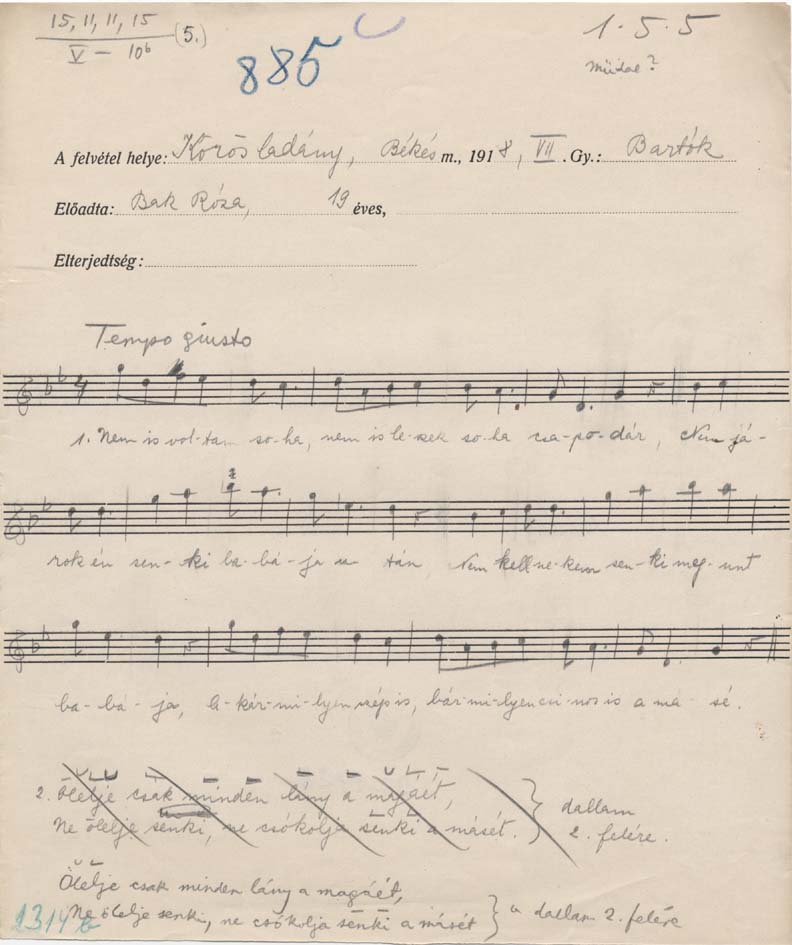 15, 11, 11, 15
V – 10b (5.)
885
1 · 5 · 5
műdal?
A felvétel helye: Körösladány, Békés m., 1918, VII. Gy.: Bartók
Előadta: Bak Róza, 19 éves,
Elterjedtség:
Tempo giusto
1. Nem is vol-tam so-ha, nem is le-szek so-ha csa-po-dár, Nem já-
rok én sen-ki ba-bá-ja u-tán Nem kell ne-kem sen-ki meg-unt
ba-bá-ja, a-kár-mi-lyen szép is, bár-mi-lyen csi-nos is a má-sé.
2. Ölelje csak minden lány a magáét,
Ne ölelje senki, ne csókolja senki a másét. } dallam 2. felére.
Ölelje csak minden lány a magáét,
Ne ölelje senki, ne csókolja senki a másét } a dallam 2. felére
1314b